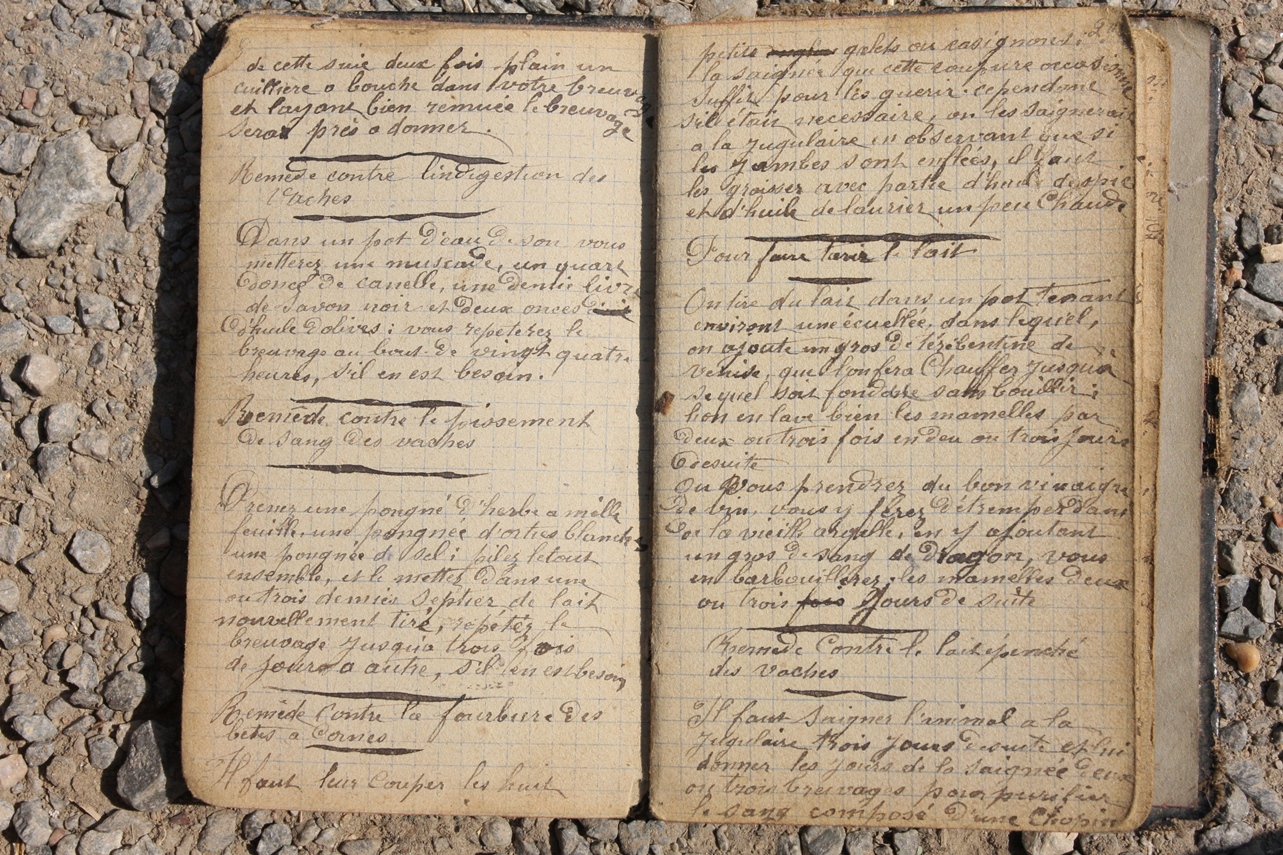 de cette suie deux fois plain un
cuillière a bouche dans votre breuvage
et layant bien remuée le breuvage
sera prés a donner.
Remède contre lindigestion des
Vaches
Dans un pot d'eau de son vous
metterez une muscade, un quart
donce de canelle, une demie livre
de savon noir et deux onces
d'huile dolives: vous repeterez le
breuvage au bout de vingt quatre
heures, s'il en est besoin.
Remède contre le pissement
de sang des vaches
Prenez une pongné d'herbe a mille
feuille, une pongnée d'ortie blanche
une pongnée de sel: pilez letout
ensemble, et le mettez dans une
ou trois demies septier de lait
nouvellement tiré, repetéz le
breuvage jusqua trois fois
de jours a autre, s'il en est besoin,
Remède Contre la fourbure des
betes a Cornes
Il faut leur couper les huit
petits galets ou casignons, 2.
la saignée que cette coupure occasionne
suffit pour les guerir. cependant
s'il était necessaire, on les saignerai
a la jugulaire en observant que si
les jambes sont enflées, il faut
les graisser avec partie d'huile
et d'huile de laurier un peu chaude
Pour faire tarir le lait
On tire du lait dans un pot tenant
environt une écuellée, dans lequel,
on ajoute un gros de térébentine de
venise, que l'on fera Chauffer jusqua
se quel soit fondue sans bouillir;
lion en lave bien les mamelles par
deux ou trois fois en deu ou trois jours
desuite
Ou vous prendrez du bon vinaigre
de vin, vous y férez détremper dans
de la vieille argille, en y ajoutant
un gros de sang de dragon, vous
en barbouillerez; les mamelles deux
ou trois fois jours de suite
Remede Contre le lait épenché
des vaches
Il faut Saigner l'animal a la
jugulaire trois jours desuite et lui
donner les jours de la saignée deux
ou trois breuvages pour purifier
le sang composé d'une Chopine